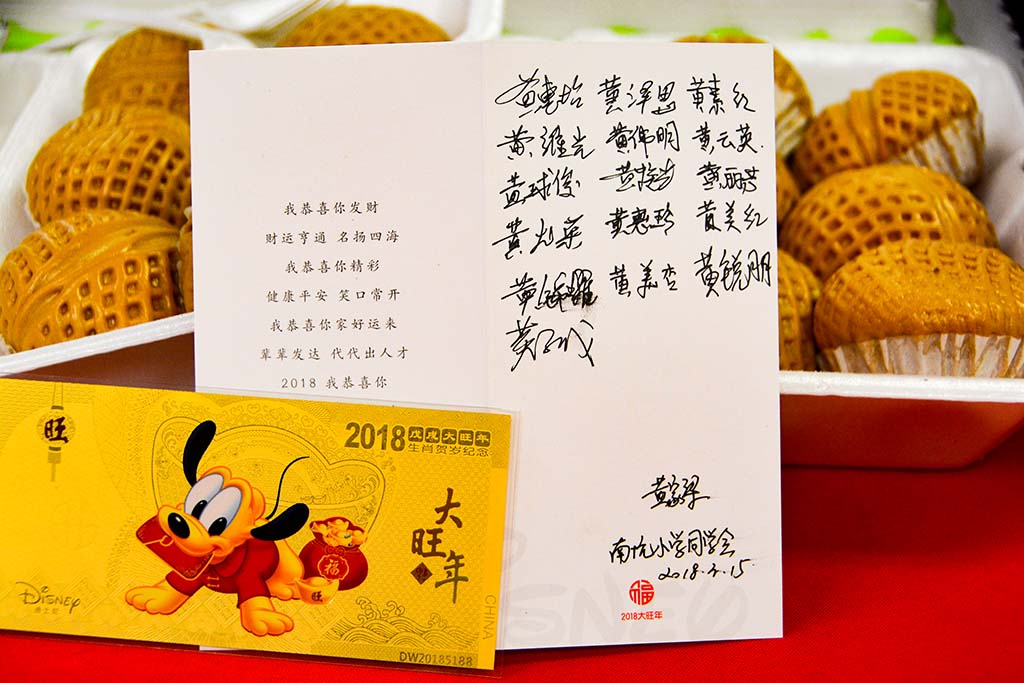 我恭喜你发财
财运亨通 名扬四海
我恭喜你精彩
健康平安 笑口常开
我恭喜你家好运来
辈辈发达 代代出人才
2018 我恭喜你
黄惠怡 黄泽思 黄素红
黄维光 黄伟明 黄云英
黄球俊 黄丽芳
黄光华 黄惠玲 黄美红
黄美杏 黄锐朋
黄家梁
南坑小学同学会
2018.2.15
福
2018大旺年
旺
2018戊戌大旺年
生肖贺岁纪念
大旺年
福
DISNEY
迪士尼
CHINA
DW20185188
DISNEY